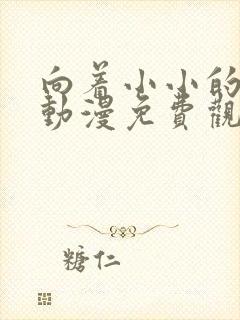 向着小小的
動漫免費觀
糖仁